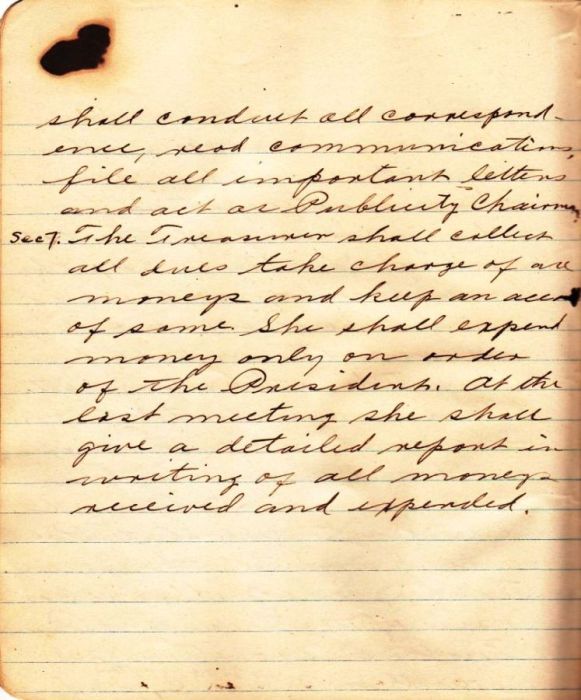 shall conduct all correspond-
ence, read communications,
file all important letters
and act as Publicity Chairman
Sec 7. The Treasurer shall collect
all dues take charge of all
moneys and keep an
of same. She shall expend
money only on order
of the President. At the
last meeting she shall
give a detailed report in
writing of all moneys
received and expended.